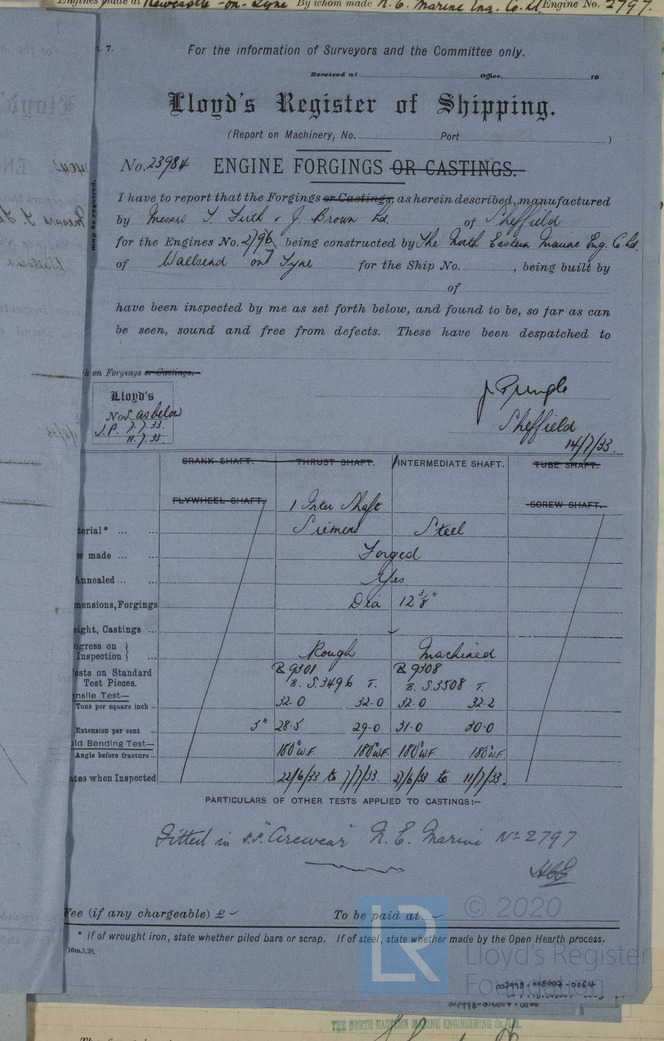 Engines made at Newcastle-on-Tyne By whom made N. E. Marine Eng. Co. Ld Engine No. 2797.
. 7.
For the information of Surveyors and the Committee only.
Received at Office, 19
Lloyd's Register of Shipping.
(Report on Machinery, No. Port )
No. 23984 ENGINE FORGINGS OR CASTINGS.
may be required.
I have to report that the Forgings or Castings, as herein described, manufactured
by Messrs T. Firth & J. Brown Ld. of Sheffield
for the Engines No. 2796 being constructed by The North Eastern Marine Eng. Co Ld.
of Wallsend on Tyne for the Ship No. , being built by
of
have been inspected by me as set forth below, and found to be, so far as can
be seen, sound and free from defects. These have been despatched to
k on Forgings or Castings.
Lloyd's
Nos. as below
J.P. 7.7.33.
11.7.33.
J. Pringle
Sheffield
14/7/33.
CRANK SHAFT. THRUST SHAFT. INTERMEDIATE SHAFT. TUBE SHAFT.
FLYWHEEL SHAFT. 1 Inter Shaft SCREW SHAFT.
terial* ... ... Siemens Steel
w made ... ... Forged
Annealed ... ... Yes
mensions, Forgings Dia 12 3/8"
eight, Castings ...
ogress on
Inspection } ... Rough Machined
ests on Standard B 9301 B 9308
Test Pieces. B.S.3496 T. B.S.3508 T.
nsile Test—
Tons per square inch ... 32.0 32.0 32.0 32.2
Extension per cent 3" 28.5 29.0 31.0 30.0
ld Bending Test—
Angle before fracture ... 180°W.F. 180°W.F. 180°W.F. 180°W.F.
ates when Inspected 22/6/33 to 7/7/33 27/6/33 to 11/7/33.
PARTICULARS OF OTHER TESTS APPLIED TO CASTINGS:—
Fitted in S.S. "Arcwear" N. E. Marine No 2797
Fee (if any chargeable) £ To be paid at
* If of wrought iron, state whether piled bars or scrap. If of steel, state whether made by the Open Hearth process.
10m.3.29.
LR
© 2020
Lloyd's Register
Foundation
002998-003007-0064
THE NORTH EASTERN MARINE ENGINEERING CO. LTD.